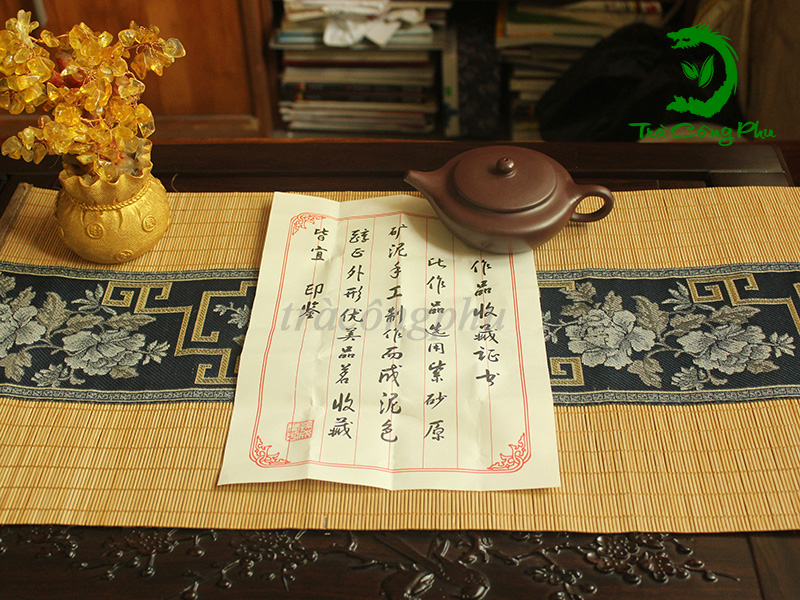 作品收藏证书
此作品选用紫砂原
矿泥手工制作而成泥色
醇正外形优美品茗收藏
皆宜 印鉴
Trà Công Phu
tràcôngphu